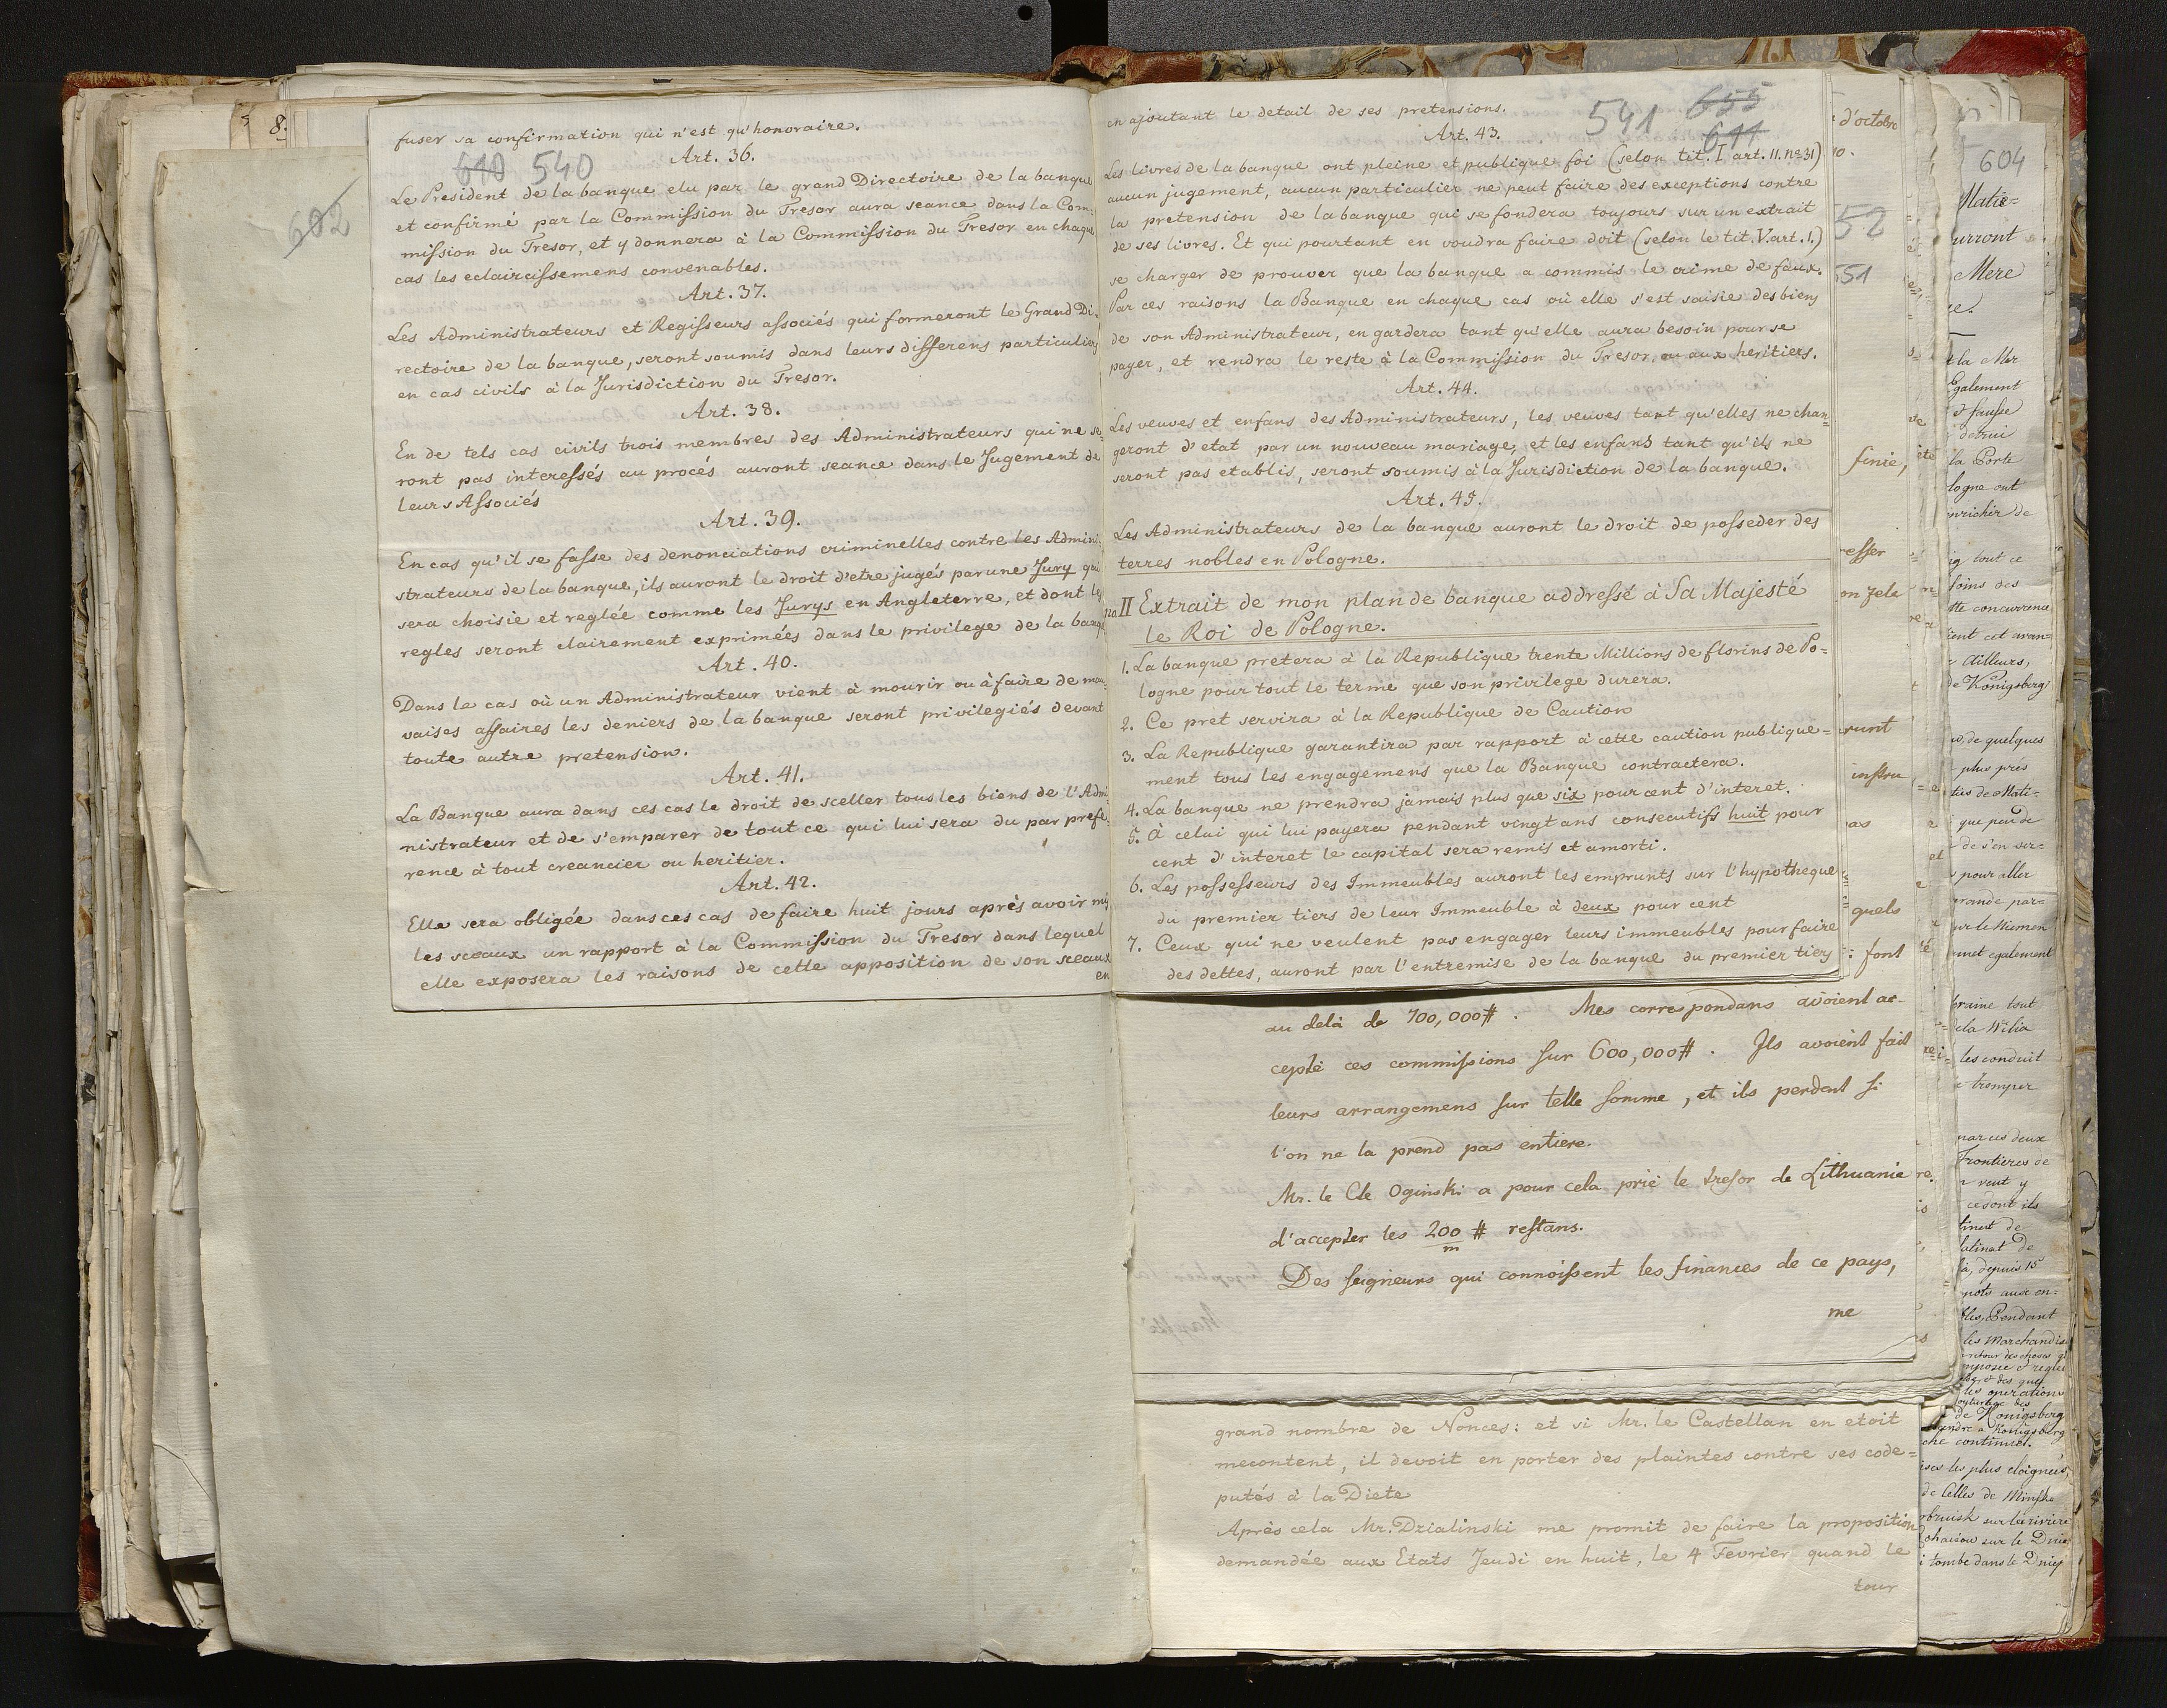 8.
602
fuser sa confirmation qui n'est qu'honoraire.
610 540
Art. 36.
Le President de la banque elu par le grand Directoire de la banque
et confirmé par la Commission du Tresor aura seance dans la Com=
mission du Tresor, et y donnera à la Commission du Tresor en chaque
cas les eclaircissemens convenables.
Art. 37.
Les Administrateurs et Regisseurs associés qui formeront le Grand Di=
rectoire de la banque, seront soumis dans leurs differens particuliers
en cas civils à la Jurisdiction du Tresor.
Art. 38.
En de tels cas civils trois membres des Administrateurs qui ne se=
ront pas interessés au procés auront seance dans le Jugement de
leurs Associés
Art. 39.
En cas qu'il se fasse des denonciations criminelles contre les Admini=
strateurs de la banque, ils auront le droit d'etre jugés par une Jury qui
sera choisie et reglée comme les Jurys en Angleterre, et dont les
regles seront clairement exprimées dans le privilege de la banque
Art. 40.
Dans le cas où un Administrateur vient à mourir ou à faire de mau=
vaises affaires les deniers de la banque seront privilegiés devant
toute autre pretension.
Art. 41.
La Banque aura dans ces cas le droit de sceller tous les biens de l'Admi=
nistrateur et de s'emparer de tout ce qui lui sera du par prefe=
rence à tout creancier ou heritier.
Art. 42.
Elle sera obligée dans ces cas de faire huit jours après avoir mis
les sceaux un rapport à la Commission du Tresor dans lequel
elle exposera les raisons de cette apposition de son sceaux
en
en ajoutant le detail de ses pretensions.
541 655
611
Art. 43.
Les livres de la banque ont pleine et publique foi (selon tit. I art. 11. no 31)
aucun jugement, aucun particulier ne peut faire des exceptions contre
la pretension de la banque qui se fondera toujours sur un extrait
de ses livres. Et qui pourtant en voudra faire doit (selon le tit. V. art. 1.)
se charger de prouver que la banque a commis le crime de faux.
Par ces raisons la Banque en chaque cas où elle s'est saisie des biens
de son Administrateur, en gardera tant qu'elle aura besoin pour se
payer, et rendra le reste à la Commission du Tresor, ou aux heritiers.
Art. 44.
Les veuves et enfans des Administrateurs, les veuves tant qu'elles ne chan=
geront d'etat par un nouveau mariage, et les enfans tant qu'ils ne
seront pas etablis, seront soumis à la Jurisdiction de la banque.
Art. 45.
Les Administrateurs de la banque auront le droit de posseder des
terres nobles en Pologne.
II Extrait de mon plan de banque addressé à Sa Majesté
le Roi de Pologne.
1. La banque pretera à la Republique trente Millions de florins de Po=
logne pour tout le terme que son privilege durera.
2. Ce pret servira à la Republique de Caution
3. La Republique garantira par rapport à cette caution publique=
ment tous les engagemens que la Banque contractera.
4. La banque ne prendra jamais plus que six pour cent d'interet.
5. A celui qui lui payera pendant vingt ans consecutifs huit pour
cent d'interet le capital sera remis et amorti.
6. Les possesseurs des Immeubles auront les emprunts sur l'hypotheque
du premier tiers de leur Immeuble à deux pour cent
7. Ceux qui ne veulent pas engager leurs immeubles pour faire
des dettes, auront par l'entremise de la banque du premier tiers
au delà de 700,000 #. Mes correspondans avoient ac-
cepté ces commissions sur 600,000 #. Ils avoient fait
leurs arrangemens sur telle somme, et ils perdent si
l'on ne la prend pas entiere.
Mr. le Cte Oginski a pour cela prié le tresor de Lithuanie
d'accepter les 200 # restans.
m
Des seigneurs qui connoissent les finances de ce pays,
me
grand nombre de Nonces: et si Mr. le Castellan en etoit
mecontent, il devoit en porter des plaintes contre ses code=
putés à la Diete
Après cela Mr. Dzialinski me promit de faire la proposition
demandée aux Etats Jeudi en huit, le 4 Fevrier quand le
tour
d'octobre
52
551
finie,
esser
on zele
runt
instru
as
quels
: font
604
Matie=
urront
Mere
et la Mer
Egalement
la Porte
logne ont
enrichir de
tout ce
soins des
tte concurrence
cet avan=
Ailleurs,
de Königsberg
de quelques
plus près
tés de Mati=
que peu de
de s'en ser=
pour aller
grande par=
sur le Niemen
met egalement
raine tout
de la Wilia
les conduit
tromper
par ces deux
Frontieres de
veut y
ce dont ils
tinat de
latinat de
depuis 15
pots aux en=
Pendant
les Marchandise
les operations
de Königsberg
che continuel.
ises les plus eloignées,
de Celles de Minske
obruisk sur la riviere
ohaisou sur le Driep
i tombe dans le Driep